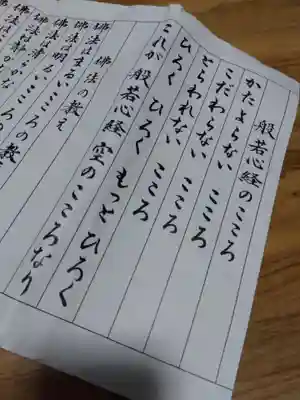 般若心経のこころ
かたよらない こころ
こだわらない こころ
とらわれない こころ
ひろく ひろく もっと ひろく
これが 般若心経 空のこころなり
佛法の教え
佛法はまるいこころの教え
佛法は明るいこころの教
佛法は清らかな